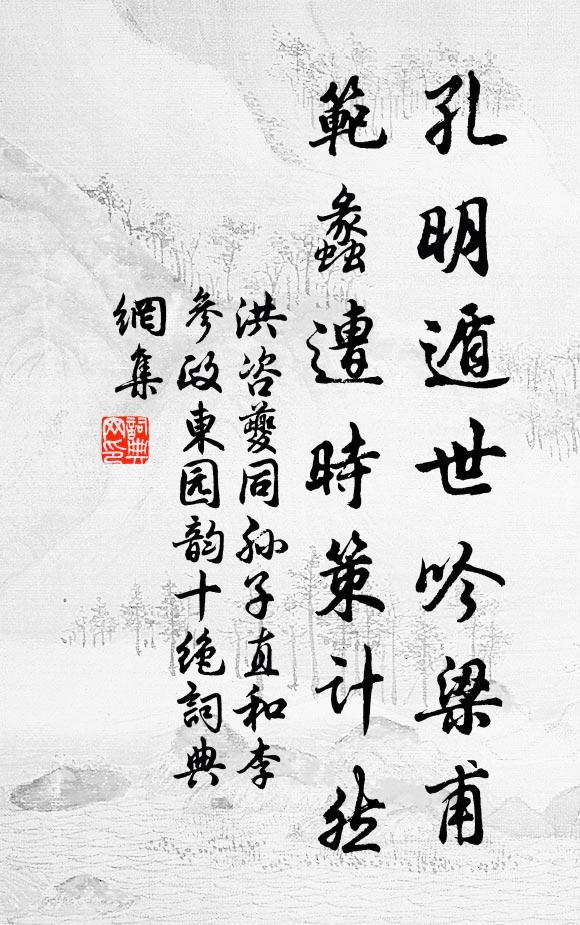 孔明遁世吟梁甫
範蠡遭時策計然
洪咨夔同孙子直和李
參政東园韵十绝詞典
網集
詞典
网印